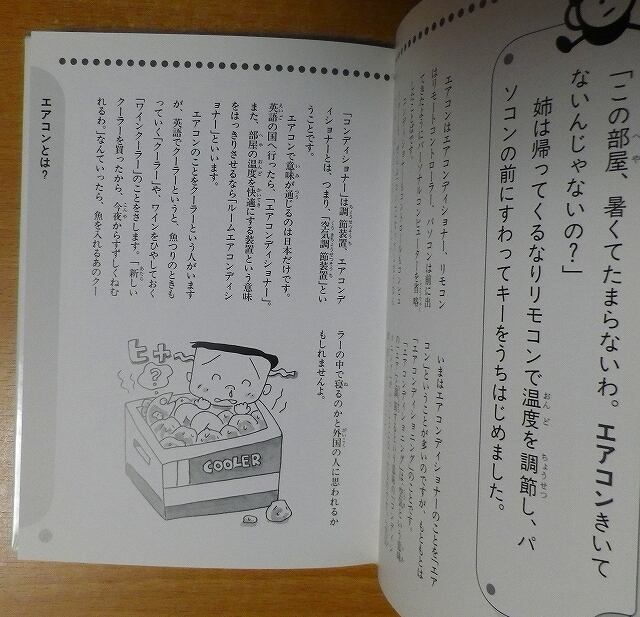 「この部屋、暑くてたまらないわ。エアコンきいて
ないんじゃないの？」
姉は帰ってくるなりリモコンで温度を調節し、パ
ソコンの前にすわってキーをうちはじめました。
エアコンはエアコンディショナー、リモコン
はリモートコントローラー、パソコンは前に出
てきたようにパーソナルコンピューターを省略
いまはエアコンディショナーのことをエア
コンということが多いのですが、もともとは
「エアコンディショニング」のことです。
「コンディショナー」は調節装置、エアコンデ
ィショナーとは、つまり、「空気調節装置」とい
うことです。
エアコンで意味が通じるのは日本だけです。
英語の国へ行ったら、「エアコンディショナー」。
また、部屋の温度を快適にする装置という意味
をはっきりさせるなら「ルームエアコンディシ
ョナー」といいます。
エアコンのことをクーラーという人がいます
が、英語でクーラーというと、魚つりのときも
っていく「クーラー」や、ワインをひやしておく
「ワインクーラー」のことをさします。「新しい
クーラーを買ったから、今夜からすずしくねむ
れるわ。」なんていったら、魚を入れるあのクー
ラーの中で寝るのかと外国の人に思われるか
もしれませんよ。
ヒャ〜
?
COOLER
エアコンとは？